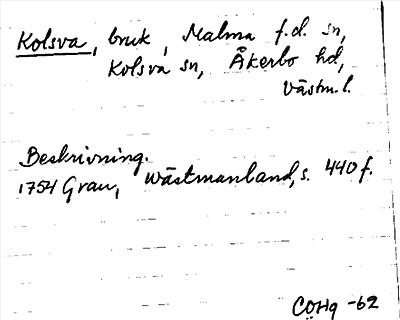 Kolsva, bruk, Malma f.d. sn,
Kolsva sn, Åkerbo hd,
Västm.l.
Beskrivning.
1754 Grau, Wästmanland, s. 440 f.
CÖHq -62